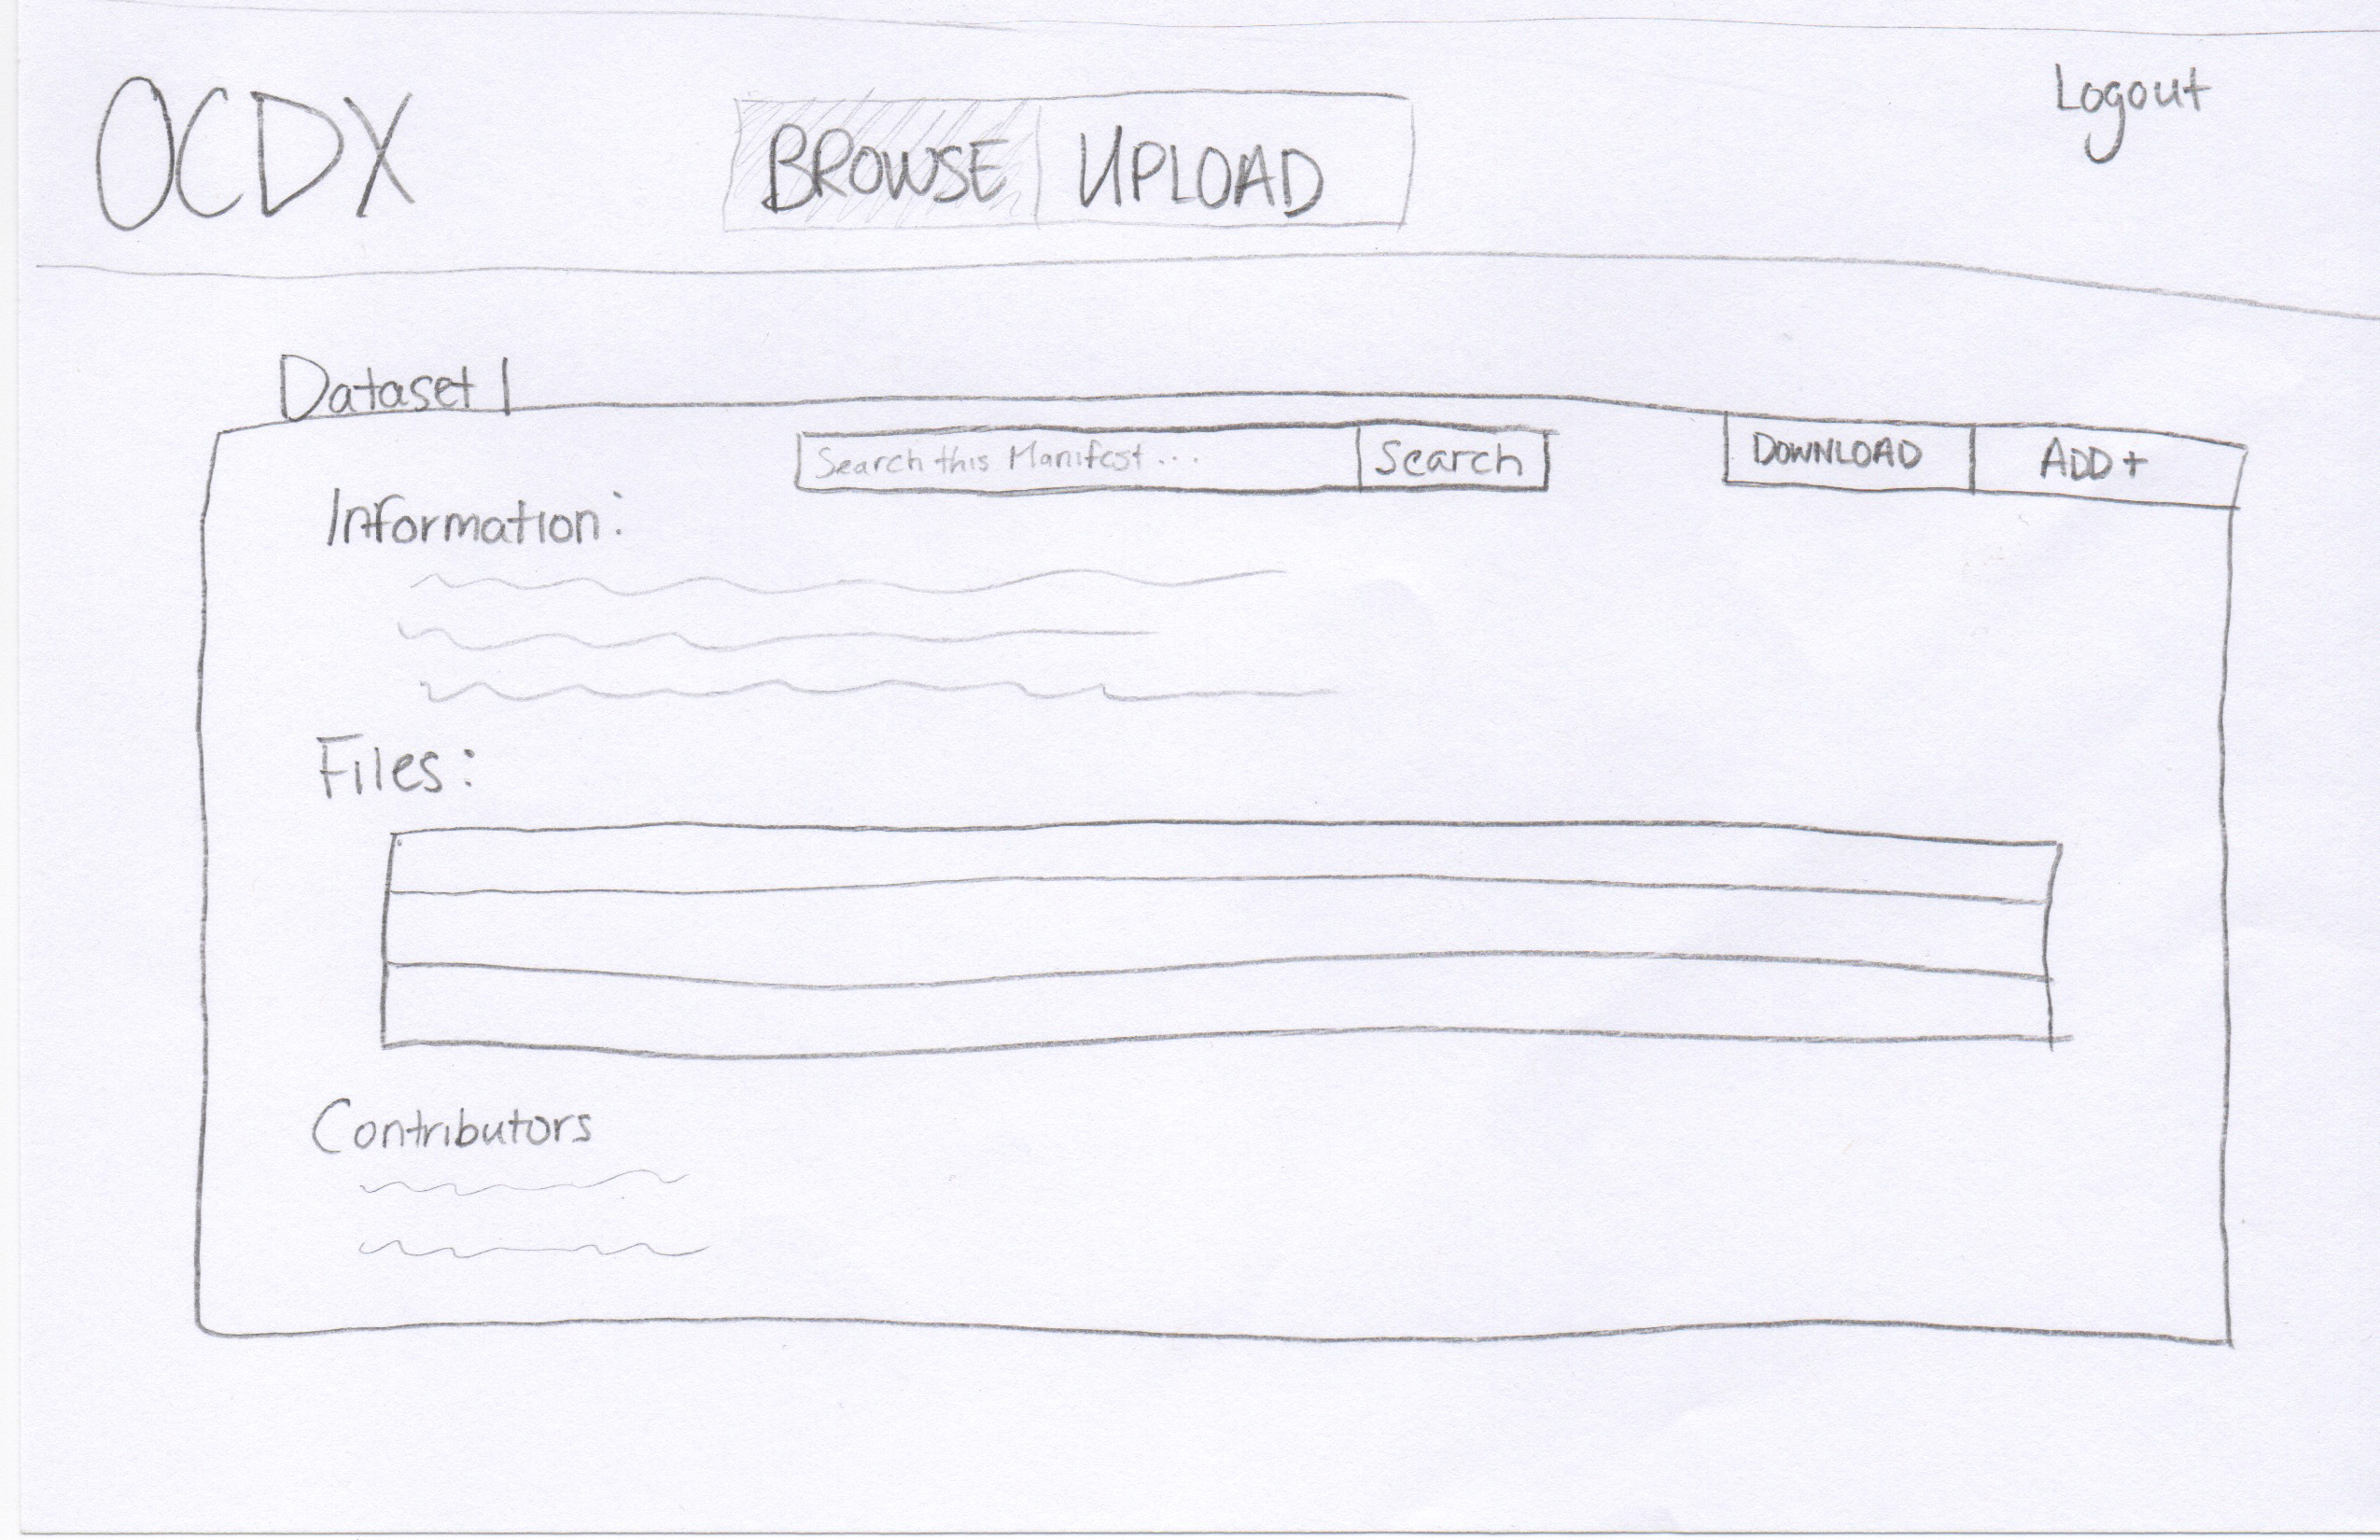 OCDX
BROWSE UPLOAD
Logout
Dataset 1
Search this Manifest... Search
DOWNLOAD ADD+
Information:
Files:
Contributors